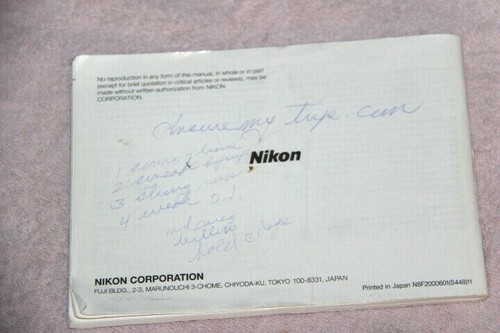 No reproduction in any form of this manual, in whole or in part
(except for brief quotation in critical articles or reviews), may be
made without written authorization from NIKON
CORPORATION.
Insure my trip.com
1
2 sweat
3
4 weak
Nikon
hold
NIKON CORPORATION
FUJI BLDG., 2-3, MARUNOUCHI 3-CHOME, CHIYODA-KU, TOKYO 100-8331, JAPAN
Printed in Japan N8F2000601(S448)11